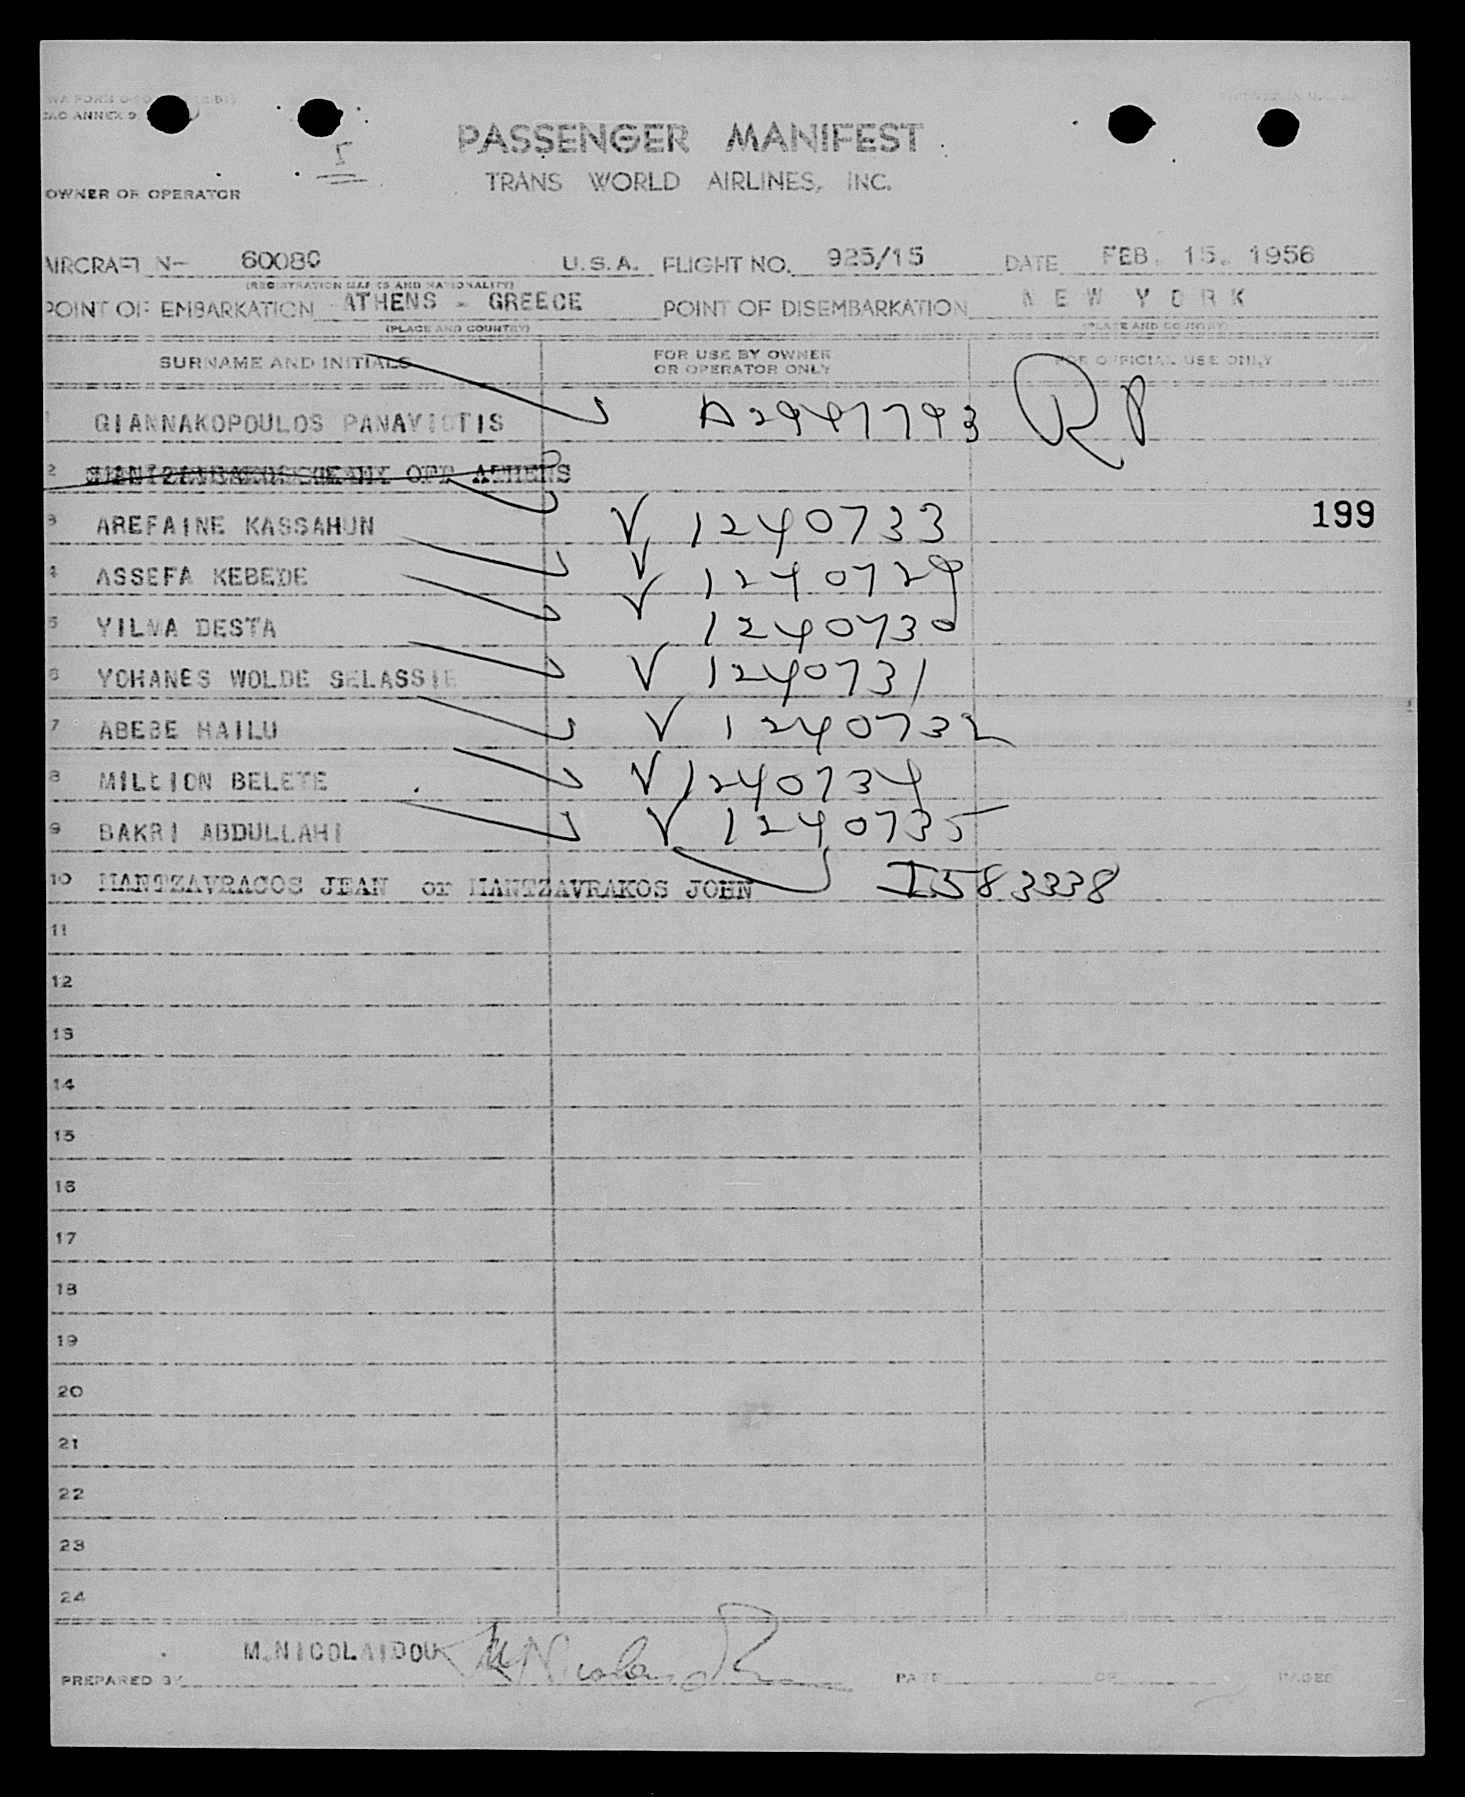 ANNEX 9
PASSENGER MANIFEST
TRANS WORLD AIRLINES, INC.
OWNER OR OPERATOR
AIRCRAFT N- 60080 U.S.A. FLIGHT NO. 925/15 DATE FEB. 15. 1956
(REGISTRATION MARKS AND NATIONALITY)
POINT OF EMBARKATION ATHENS - GREECE POINT OF DISEMBARKATION NEW YORK
(PLACE AND COUNTRY) (PLACE AND COUNTRY)
SURNAME AND INITIALS FOR USE BY OWNER OR OPERATOR ONLY FOR OFFICIAL USE ONLY
1 GIANNAKOPOULOS PANAYIOTIS A2947793 RP
2 OFF ATHENS
199
3 AREFAINE KASSAHUN V 1240733
4 ASSEFA KEBEDE V 1240729
5 YILMA DESTA V 1240730
6 YOHANES WOLDE SELASSIE V 1240731
7 ABEBE HAILU V 1240732
8 MILLION BELETE V 1240734
9 BAKRI ABDULLAHI V 1240735
10 MANTZAVRACOS JEAN or MANTZAVRAKOS JOHN I583338
11
12
13
14
15
16
17
18
19
20
21
22
23
24
M.NICOLAIDOU
PREPARED BY PAGE OF PAGES